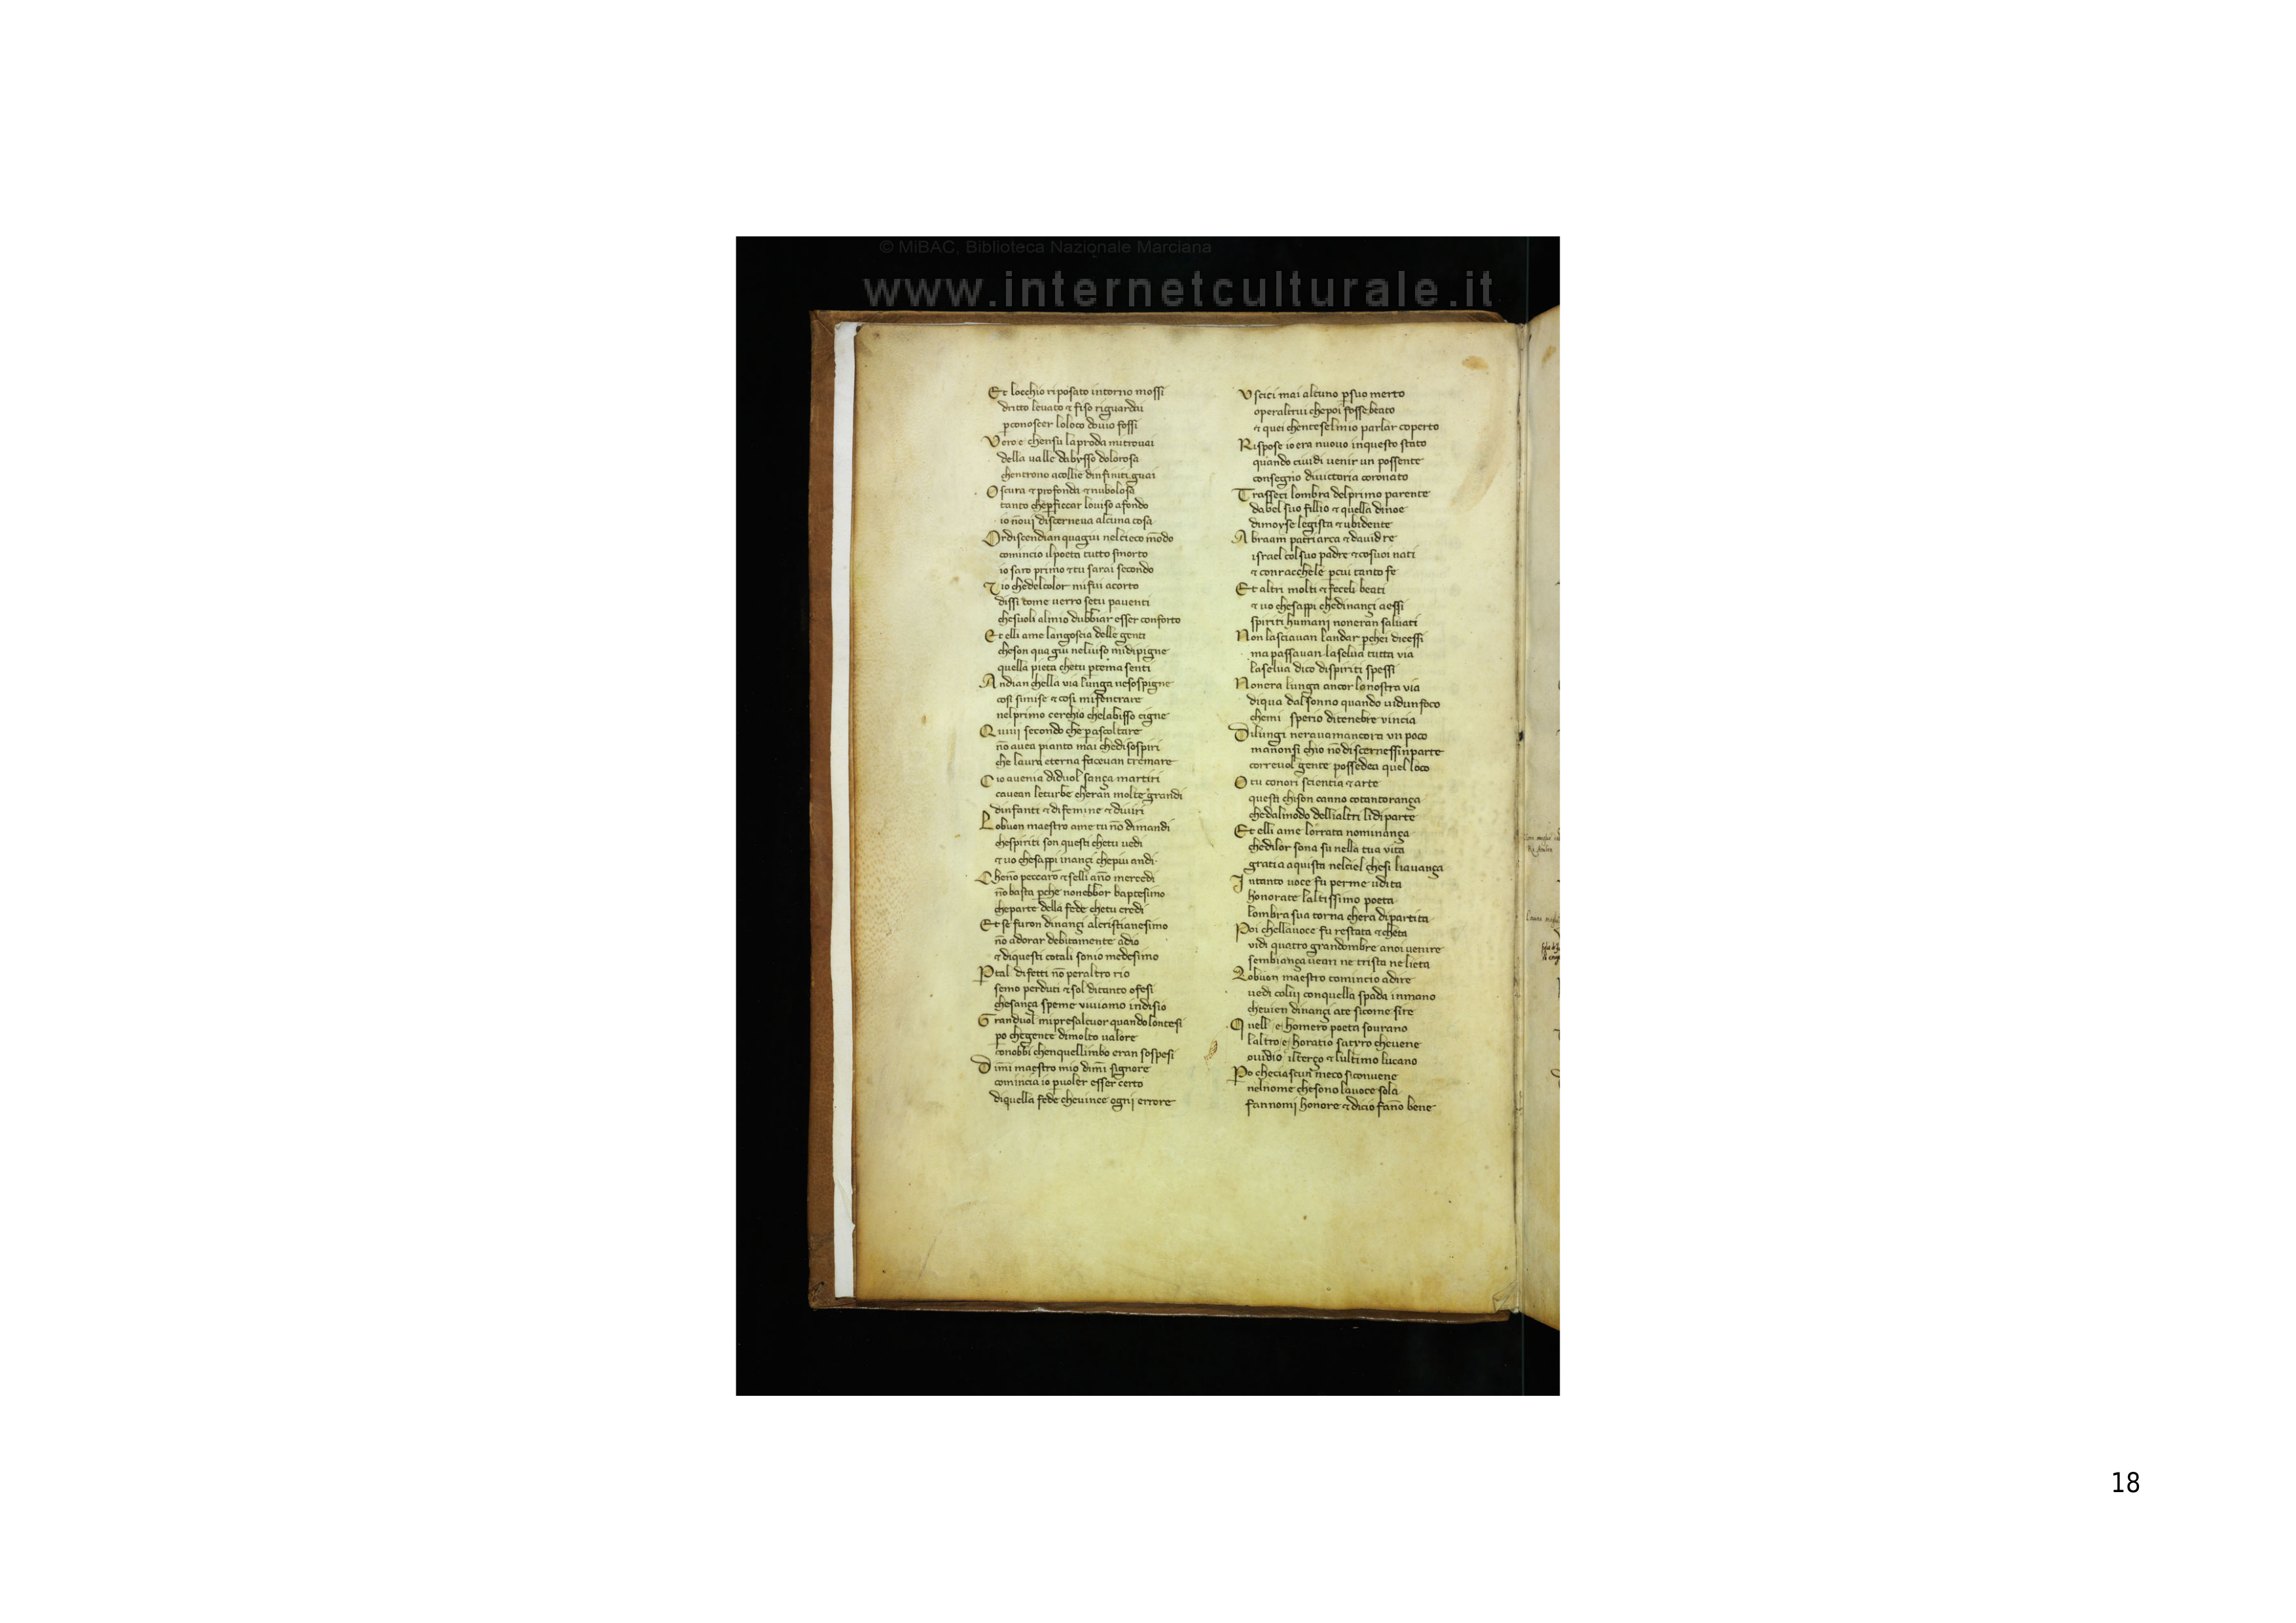 © MiBAC, Biblioteca Nazionale Marciana
www.internetculturale.it
Et locchio riposato intorno mossi
dritto leuato ⁊ fiso riguardai
ꝑconoscer loloco douio fossi
Vero e chensu laproda mitrouai
della ualle dabysso dolorosa
chentrono acollie dinfiniti guai
Oscura ⁊ profonda ⁊ nubolosa
tanto cheꝑficcar louiso afondo
io nōui discerneua alcuna cosa
Ordiscendian quagiu nelcieco mōdo
comincio ilpoeta tutto smorto
io saro primo ⁊ tu sarai secondo
⁊ io chedelcolor mifui acorto
dissi come uerro setu pauenti
chesuoli almio dubbiar esser conforto
Et elli ame langoscia delle genti
cheson qua giu neluiso midipigne
quella pieta chetu ꝑtema senti
Andian chella via lunga nesospigne
cosi simise ⁊ cosi mifentrare
nelprimo cerchio chelabisso cigne
Quiui secondo che ꝑascoltare
nō auea pianto mai chedisospiri
che laura eterna faceuan tremare
Cio auenia diduol sança martiri
cauean leturbe cheran molte grandi
dinfanti ⁊ difemine ⁊ diuiri
Lobuon maestro ame tu nō dimandi
chespiriti son questi chetu uedi
⁊ uo chesappi inançi chepiu andi
Chenō peccarō ⁊ selli āno mercedi
nō basta ꝑche nonebbor baptesimo
cheparte della fede chetu credi
Et se furon dinançi alcristianesimo
nō adorar debitamente adio
⁊ diquesti cotali sonio medesimo
Ꝑtal difetti nō peraltro rio
semo perduti ⁊ sol ditanto ofesi
chesança speme viuiamo indisio
Granduol mipresalcuor quandolontesi
ꝑo chegente dimolto ualore
conobbi chenquellimbo eran sospesi
Dimi maestro mio dimi signore
comincia io ꝑuoler esser certo
diquella fede cheuince ogni errore
Vscici mai alcuno ꝑsuo merto
operaltrui chepoi fosse beato
⁊ quei chenteselmio parlar coperto
Rispose io era nuouo inquesto stato
quando ciuidi uenir un possente
consegno diuictoria coronato
Trasseci lombra delprimo parente
dabel suo fillio ⁊ quella dinoe
dimoyse legista ⁊ ubidente
Abraam patriarca ⁊ dauid re
israel colsuo padre ⁊ cosuoi nati
⁊ conracchele ꝑcui tanto fe
Et altri molti ⁊ feceli beati
⁊ uo chesappi chedinançi aessi
spiriti humani noneran saluati
Non lasciauan landar ꝑchei dicessi
ma passauan laselua tutta via
laselua dico dispiriti spessi
Nonera lunga ancor lanostra via
diqua dalsonno quando uidunfoco
chemi sperio ditenebre vincia
Dilungi nerauamancora vn poco
manonsi chio nō discernessinparte
correuol gente possedea quel loco
O tu conori scientia ⁊ arte
questi chison canno cotantorança
chedalmodo dellialtri lidiparte
Et elli ame lorrata nominança
chedilor sona su nella tua vita
gratia aquista nelciel chesi liauança
Intanto uoce fu perme udita
honorate laltissimo poeta
lombra sua torna chera dipartita
Poi chellauoce fu restata ⁊ cheta
vidi quatro grandombre anoi uenire
sembiança uean ne trista ne lieta
Lobuon maestro comincio adire
uedi colui conquella spada inmano
cheuien dinançi ate sicome sire
Quell e homero poeta sourano
laltro e horatio satyro cheuene
ouidio ilterço ⁊ lultimo lucano
Ꝑo checiascun meco siconuene
nelnome chesono lauoce sola
fannomi honore ⁊ dicio fāno bene
18